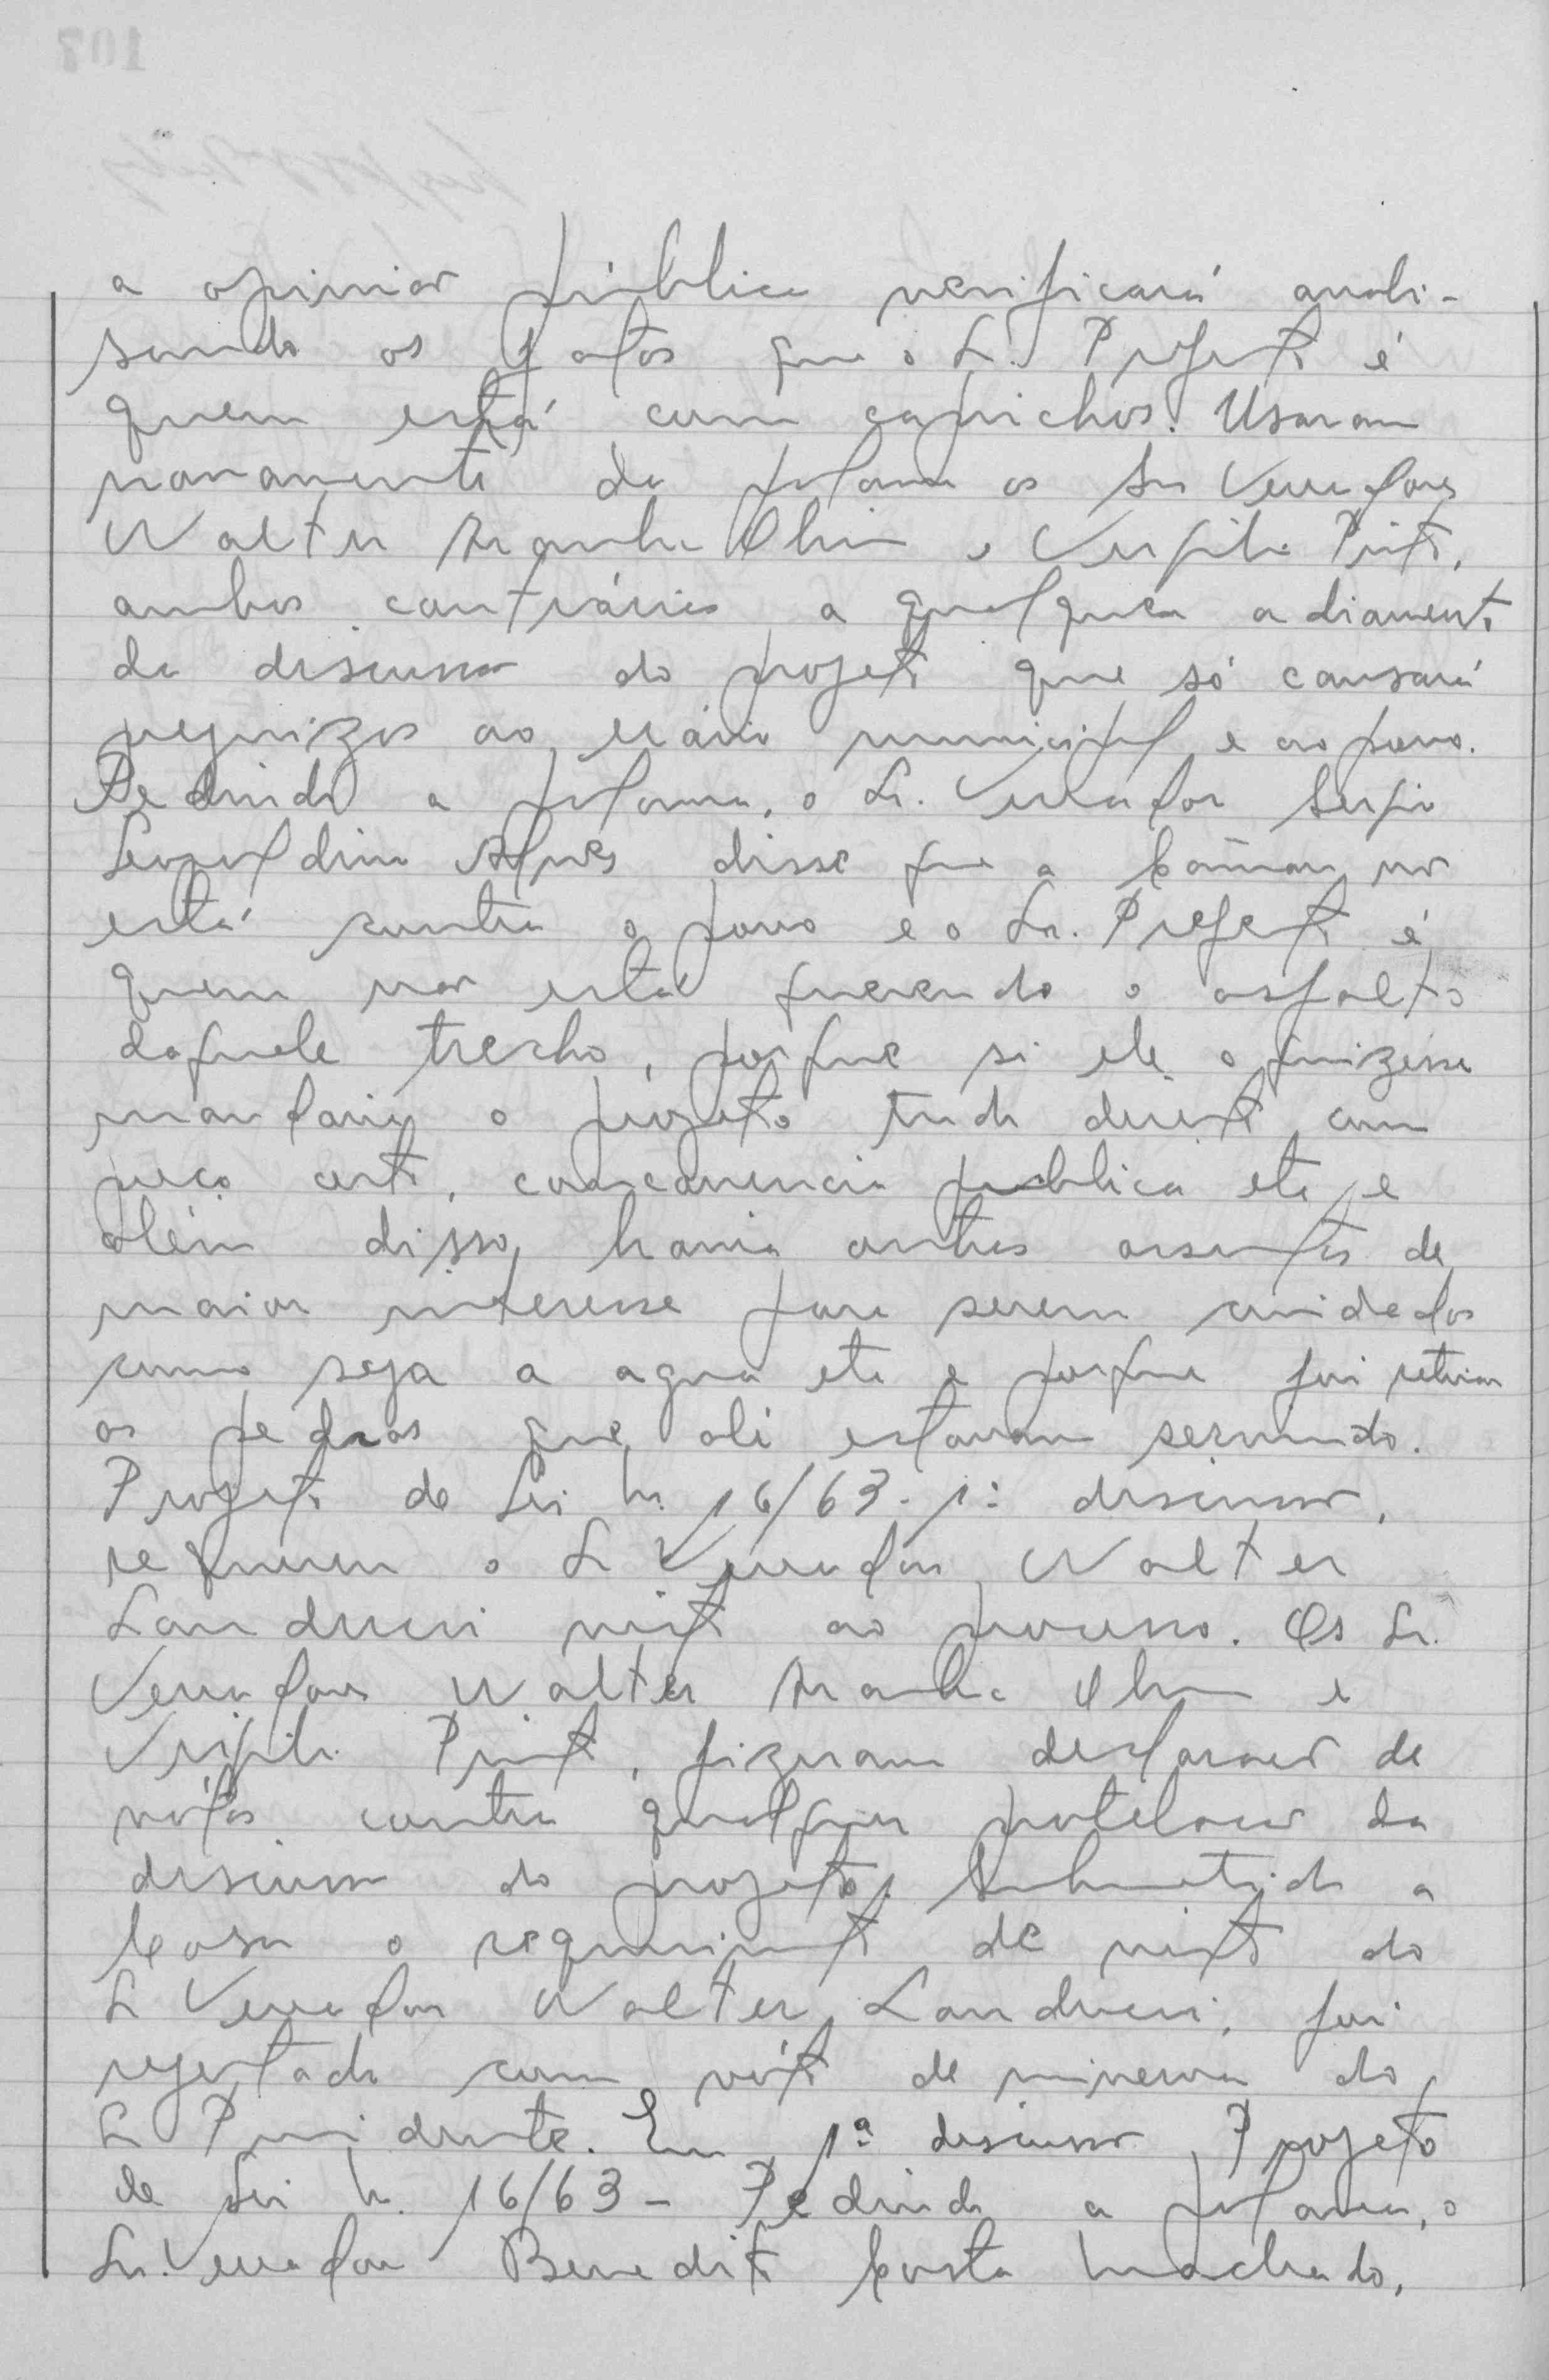 a opinião pública verificará anali-
sando os fatos que o Sr. Prefeito é
quem está com caprichos. Usaram
novamente da palavra os Srs Vereadores
Walter Aranha Olim e Vergilio Pinto,
ambos contrários a qualquer adiamento
da discussão do projeto que só causará
prejuizos ao erário municipal e ao povo.
Pedindo a palavra, o Sr. Vereador Sergio
Leopoldino Alves disse que a Câmara não
está contra o povo e o Sr. Prefeito é
quem não está querendo o asfalto
daquele trecho, porque si ele o quizesse
mandaria o projeto tudo direito com
preço certo, concorrencia publica etc e
além disso, havia outros assuntos de
maior interesse para serem cuidados
como seja a agua etc e porque foi retirar
as pedras que ali estavam servindo.
Projeto de Lei n. 16/63. 1ª discussão,
requereu o Sr Vereador Walter
Landucci vista ao processo. Os Sr.
Vereadores Walter Aranha Olim e
Virgilio Pinto, fizeram declaração de
votos contra qualquer protelação da
discussão do projeto. Submetido a
Casa o requerimento de vista do
Sr Vereador Walter Landucci, foi
rejeitado com vóto de minerva do
Sr Presidente. Em 1ª discussão Projeto
de Lei n. 16/63 - Pedindo a palavra, o
Sr. Vereador Benedito Costa Machado,
107